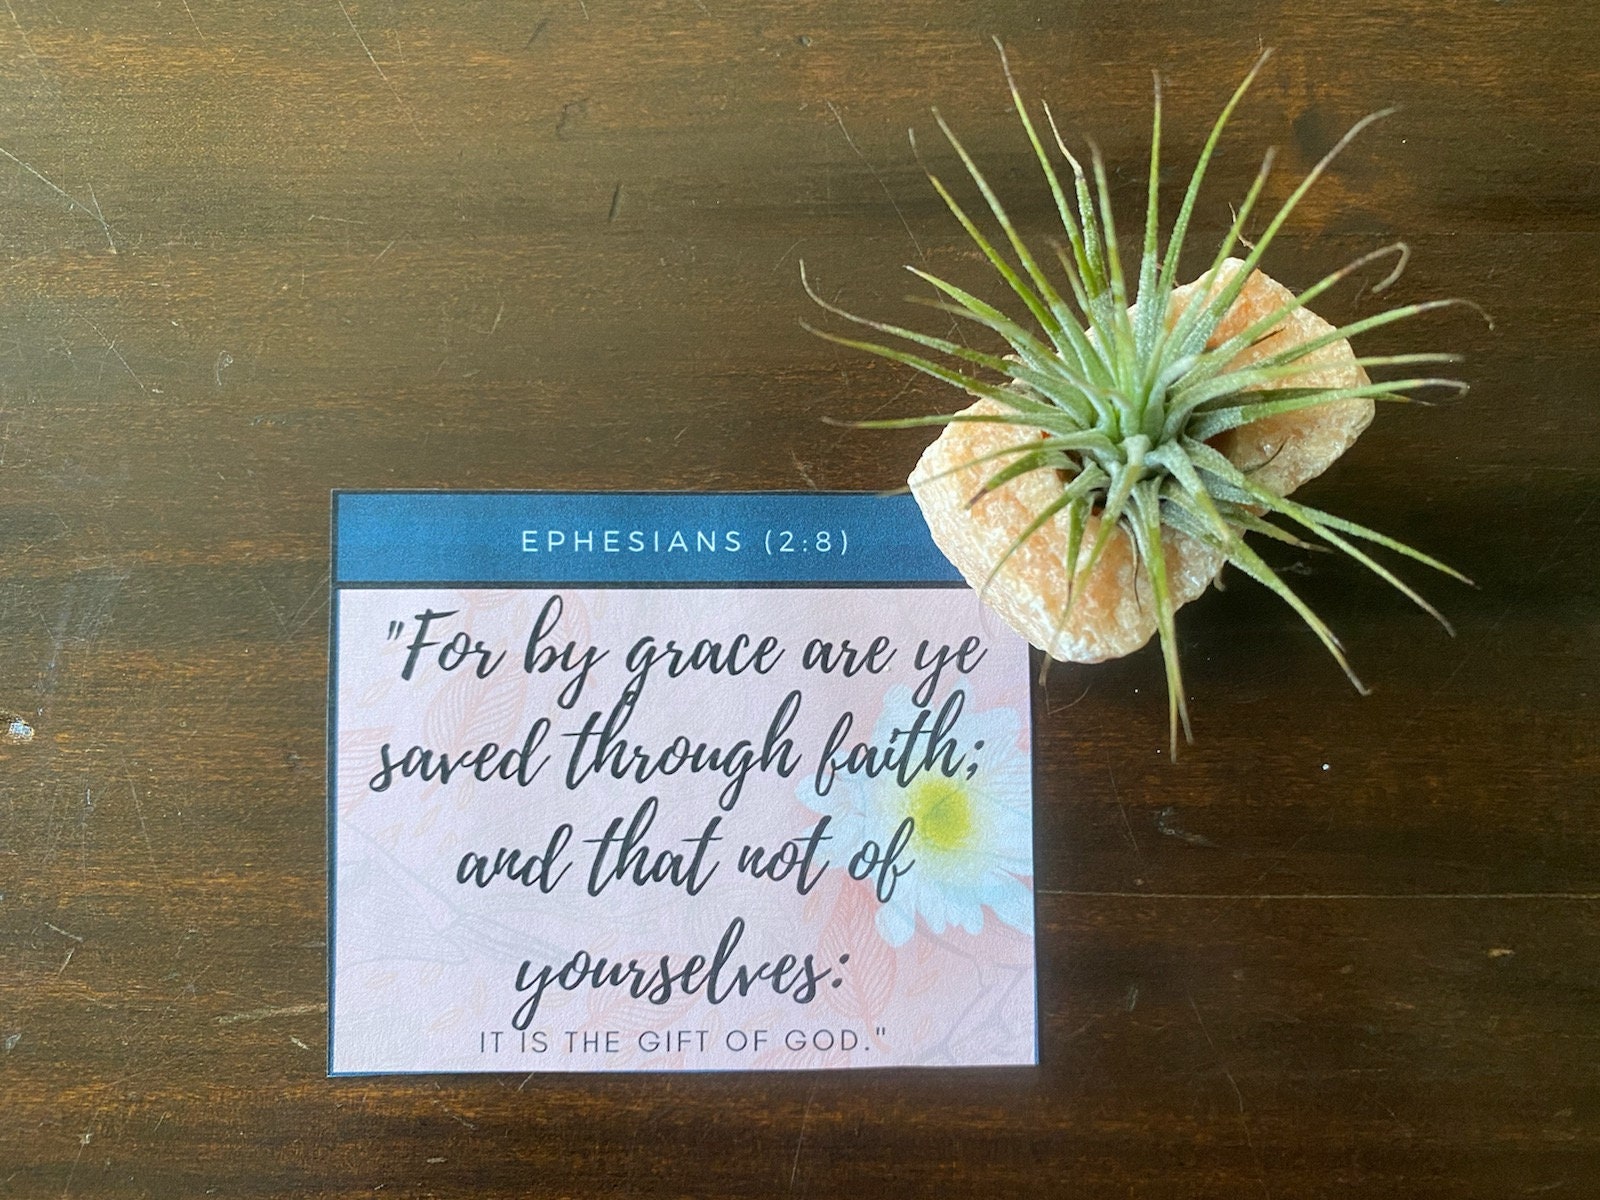 EPHESIANS (2:8)
"For by grace are ye
saved through faith;
and that not of
yourselves:
IT IS THE GIFT OF GOD."